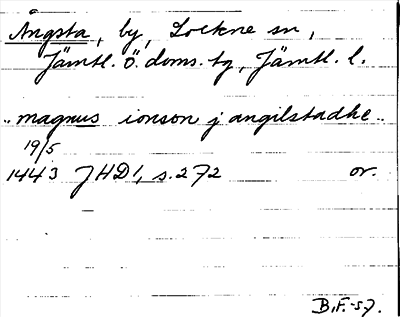 Ångsta, by, Lockne sn,
Jämtl. ö. doms. tg, Jämtl. l.
"magnus ionson j angilstadhe"
19/5
1443 JHD 1, s. 272 or.
B.F. -57.